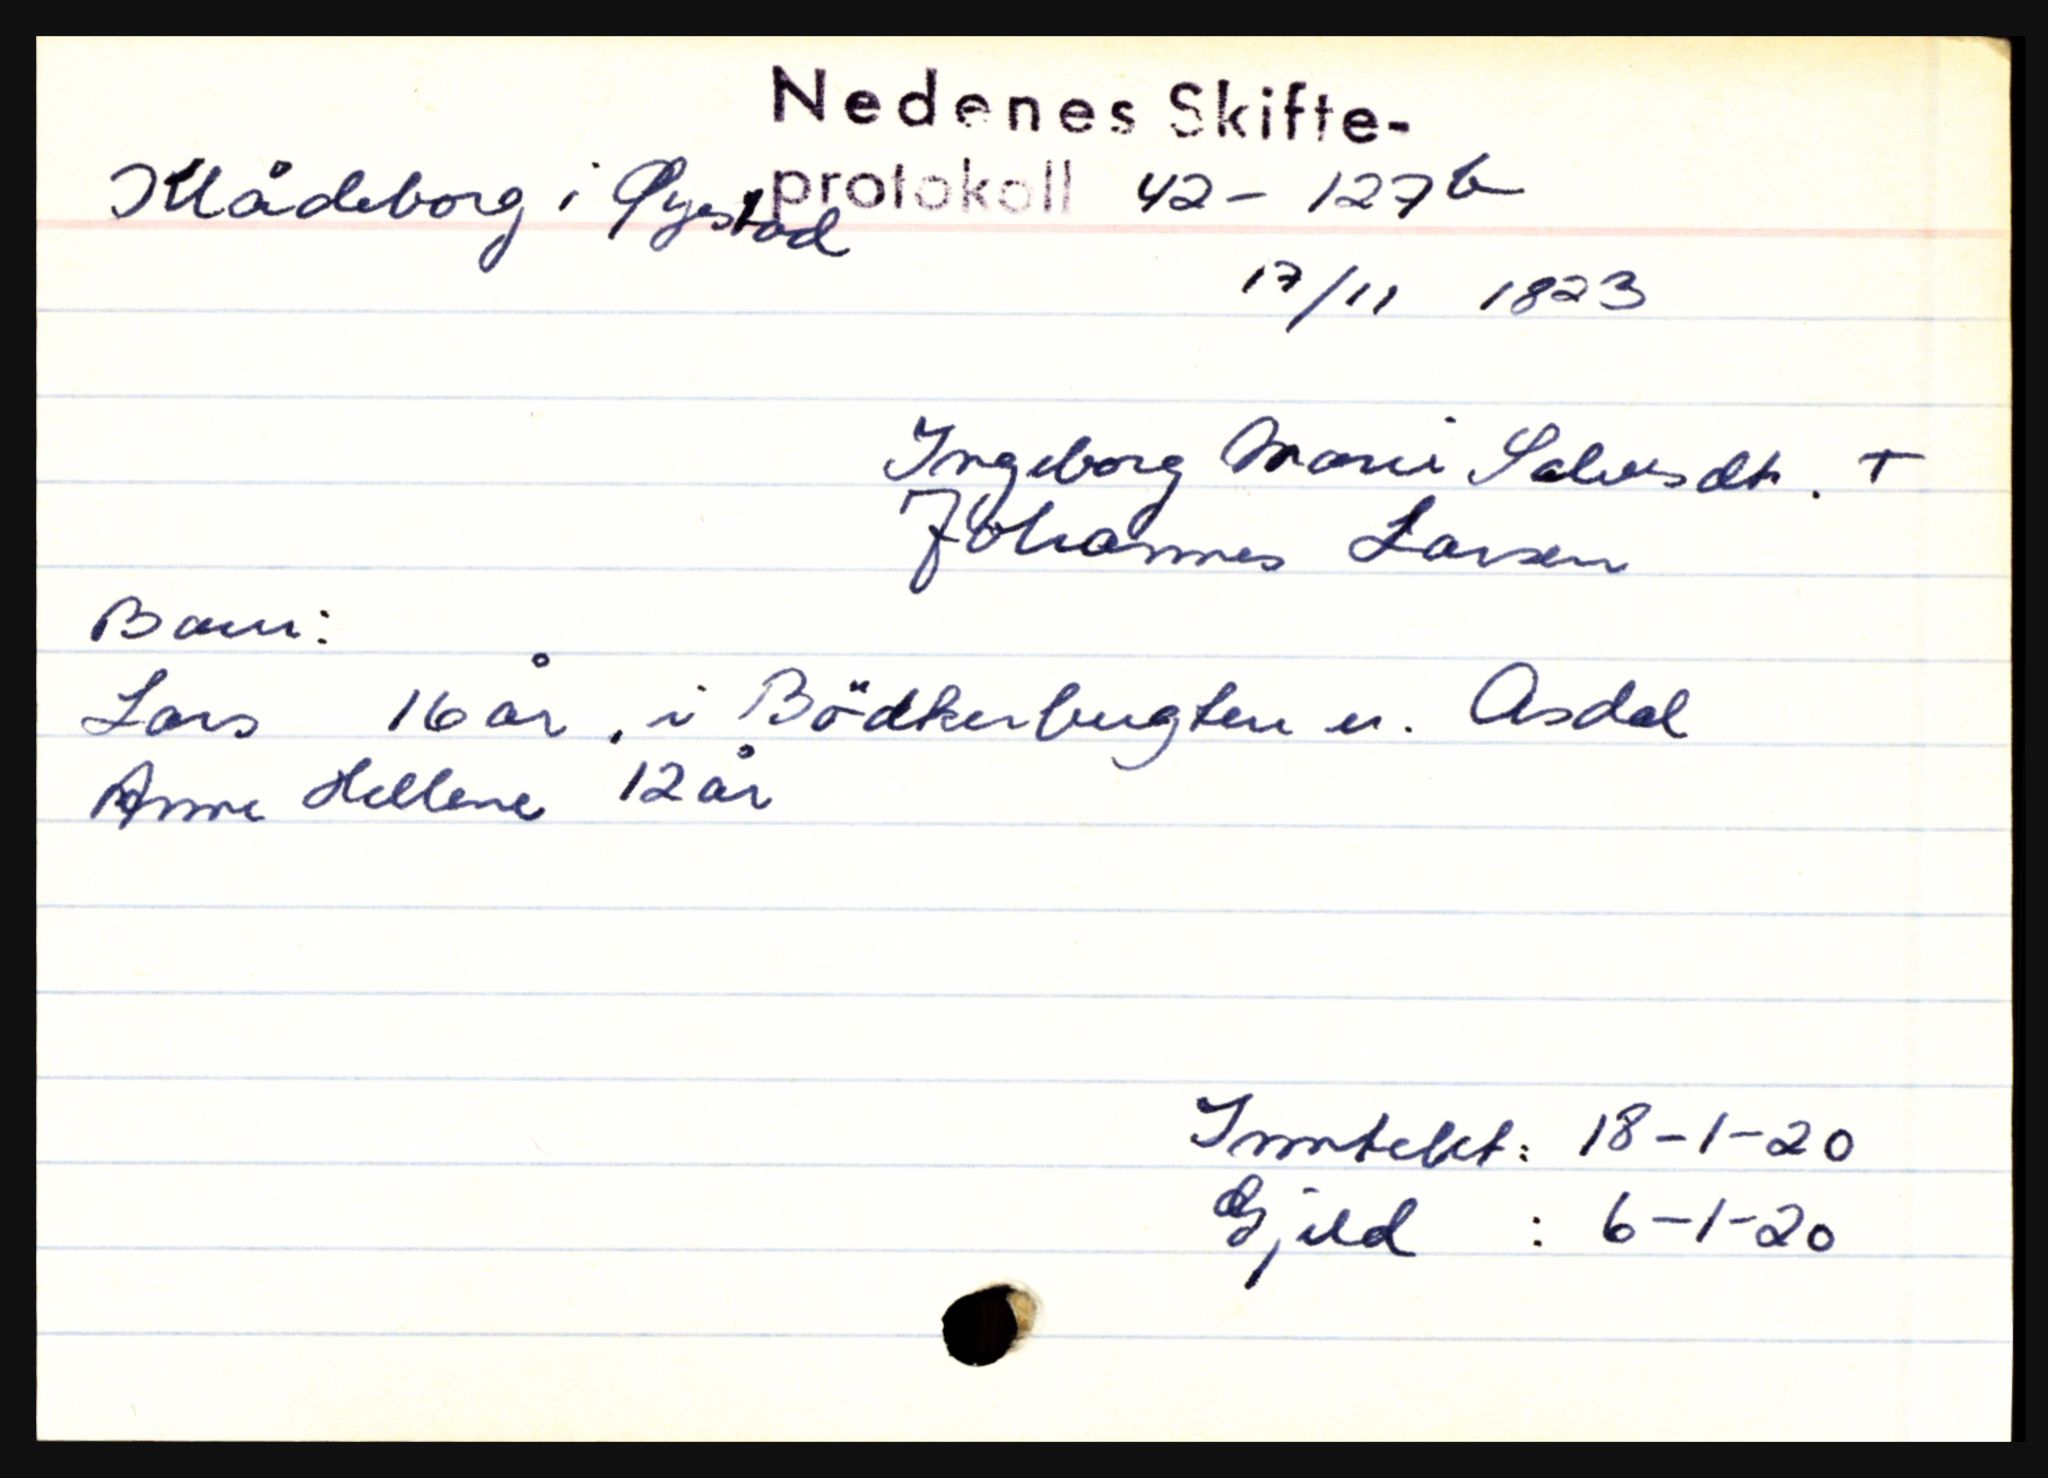 Nedenes Skifte-
protokoll 42 - 127b
Klådeborg i Øyestad
17/11 1823
Ingeborg Marie Salvesdtr. +
Johannes Larsen
Barn:
Lars 16 år, i Bödkerbugten u. Asdal
Anne Hellene 12 år
Inntekt: 18-1-20
Gjeld : 6-1-20